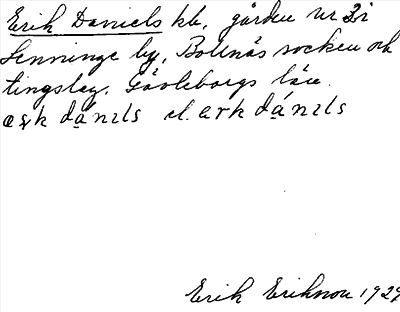 Erik Daniels hb, gården nr 3 i
Lenninge by, Bollnäs socken och
tingslag. Gävleborgs län.
ęṣk dạ́nıls el. ark dạ́nıls
Erik Eriksson 1929